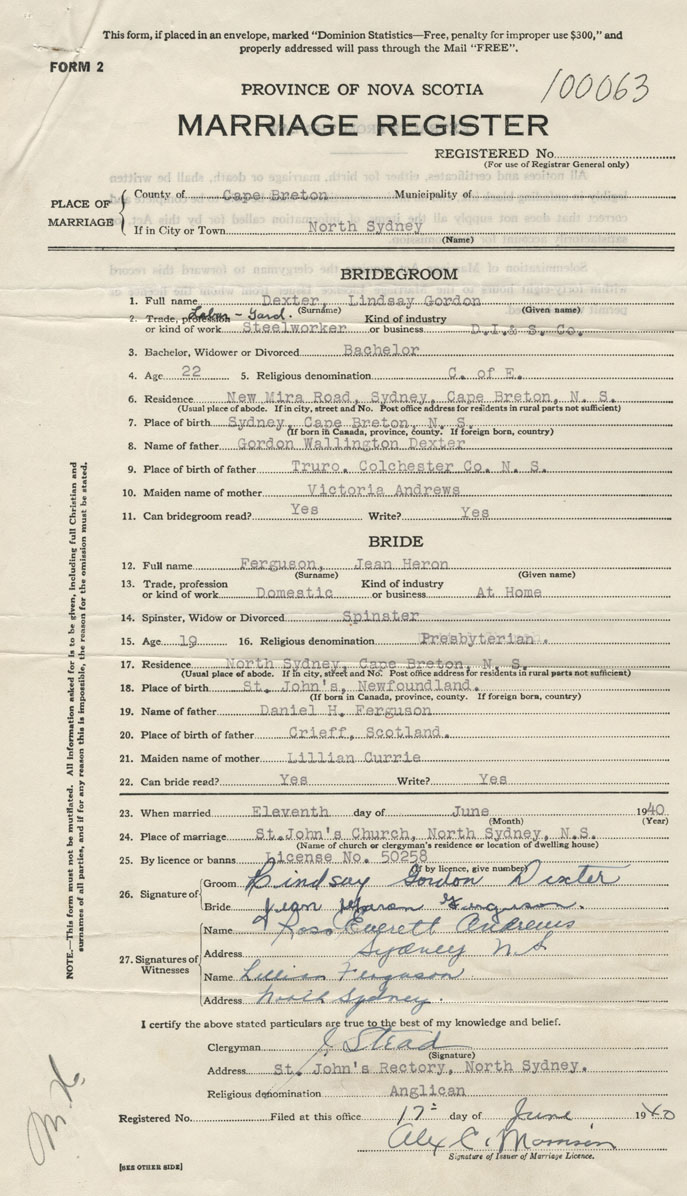 This form, if placed in an envelope, marked "Dominion Statistics—Free, penalty for improper use $300," and
properly addressed will pass through the Mail "FREE".
FORM 2
100063
PROVINCE OF NOVA SCOTIA
MARRIAGE REGISTER
REGISTERED No.
(For use of Registrar General only)
PLACE OF MARRIAGE
County of Cape Breton Municipality of
If in City or Town North Sydney
(Name)
BRIDEGROOM
1. Full name Dexter, Lindsay Gordon
(Surname) (Given name)
Labor - Yard.
2. Trade, profession Kind of industry
or kind of work Steelworker or business D.I.& S. Co.
3. Bachelor, Widower or Divorced Bachelor
4. Age 22 5. Religious denomination C. of E.
6. Residence New Mira Road, Sydney, Cape Breton, N. S.
(Usual place of abode. If in city, street and No. Post office address for residents in rural parts not sufficient)
7. Place of birth Sydney, Cape Breton, N. S.
(If born in Canada, province, county. If foreign born, country)
8. Name of father Gordon Wallington Dexter
9. Place of birth of father Truro. Colchester Co. N. S.
10. Maiden name of mother Victoria Andrews
11. Can bridegroom read? Yes Write? Yes
BRIDE
12. Full name Ferguson, Jean Heron
(Surname) (Given name)
13. Trade, profession Kind of industry
or kind of work Domestic or business At Home
14. Spinster, Widow or Divorced Spinster
15. Age 19 16. Religious denomination Presbyterian.
17. Residence North Sydney, Cape Breton, N. S.
(Usual place of abode. If in city, street and No. Post office address for residents in rural parts not sufficient)
18. Place of birth St. John's, Newfoundland.
(If born in Canada, province, county. If foreign born, country)
19. Name of father Daniel H. Ferguson
20. Place of birth of father Crieff, Scotland.
21. Maiden name of mother Lillian Currie
22. Can bride read? Yes Write? Yes
23. When married Eleventh day of June 1940
(Month) (Year)
24. Place of marriage St.John's Church, North Sydney, N.S.
(Name of church or clergyman's residence or location of dwelling house)
25. By licence or banns License No. 50258
(If by licence, give number)
26. Signature of
Groom Lindsay Gordon Dexter
Bride Jean Heron Ferguson.
27. Signatures of Witnesses
Name Ross Everett Andrews
Address Sydney N S
Name Lillian Ferguson
Address North Sydney.
I certify the above stated particulars are true to the best of my knowledge and belief.
Clergyman J Stead
(Signature)
Address St. John's Rectory, North Sydney.
Religious denomination Anglican
Registered No. Filed at this office 17 day of June 1940
Alex C. Morrison
Signature of Issuer of Marriage Licence.
[SEE OTHER SIDE]
NOTE.—This form must not be mutilated. All information asked for is to be given, including full Christian and
surnames of all parties, and if for any reason this is impossible, the reason for the omission must be stated.